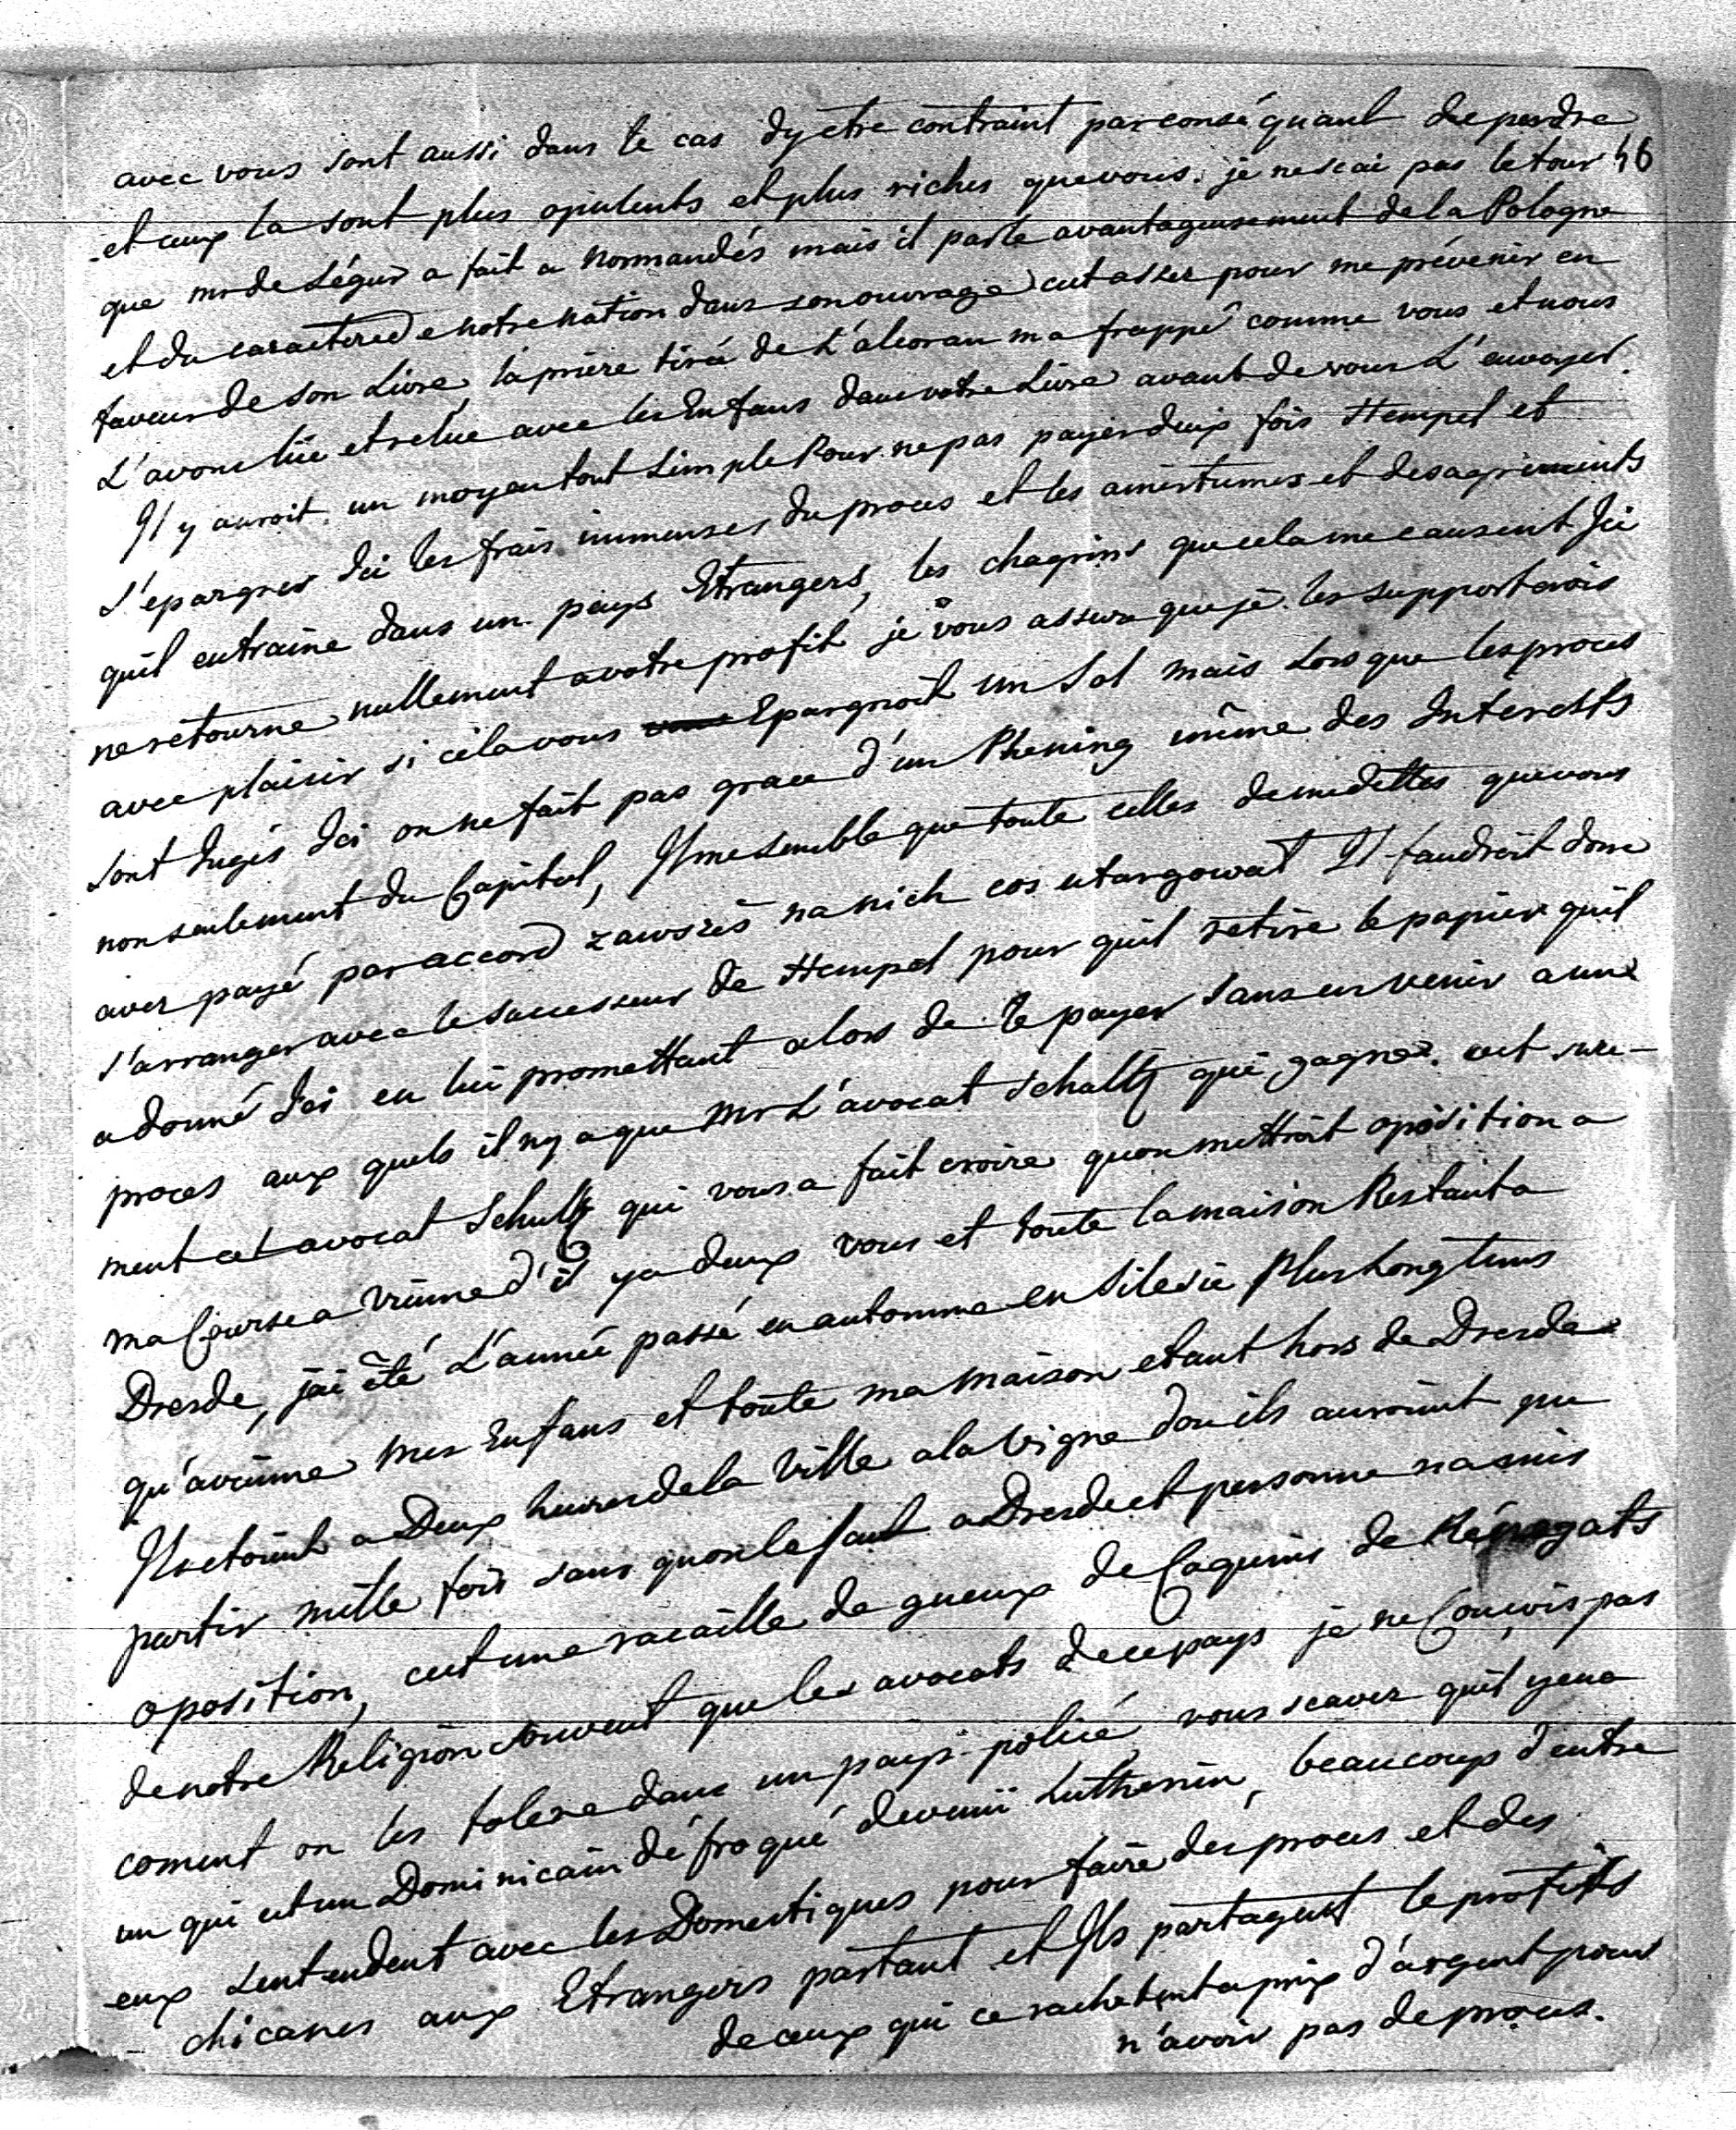 avec vous sont aussi dans le cas dy etre contraint par conséquant de perdre
46
et ceux la sont plus opulents et plus riches que vous. je ne scai pas le tour
que mr de Ségur a fait a Normandés mais il parle avantageusement de la Pologne
et du caractere de notre nation dans son ouvrage cest assez pour me prévenir en
faveur de son Livre, la priere tirée de L'alcoran m a frappé comme vous et nous
L'avons lüe et relüe avec les Enfans dans votre Livre avant de vous L'envoyer.
Il y auroit un moyen tout simple Pour ne pas payer deux fois Hempel et
s'epargner Ici les frais immenses du proces et les amertumes et desagrements
quil entraine dans un pays Etrangers, les chagrins que cela me causent Ici
ne retourne nullement a votre profit je vous assure que je les supporterois
avec plaisir si cela vous Epargnoit un Sol mais Lors que les proces
sont Jugés Ici on ne fait pas grace d'un Phening même des Interests
non seulement du Capital, Il me semble que toute celles de me dettes que vous
avez payé par accord zawszeš na nich cos utargowat Il faudroit donc
s'arranger avec le successeur de Hempel pour quil retire le papier quil
a donné Ici en lui promettant alors de le payer sans en venir a une
proces aux quels il ny a que Mr L'avocat Schultz qui gagne. cest sure-
ment cet avocat Schultz qui vous a fait croire quon mettroit oposition a
ma Course a Vienne d'il y a deux vous et toute la maison Restant a
Dresde, jai été L'année passé en automne en Silesie Plus Longtems
qu'a Vienne mes Enfans et toute ma maison etant hors de Dresde
Ils etoient a Deux heures de la Ville a la Vigne dou ils auroient pu
partir mille fois sans quon le sut a Dresde et personne na mis
oposition, cest une racaille de gueux de Coquins de Rénegats
de notre Religion souvent que les avocats de ce pays je ne Conçois pas
coment on les tolere dans un pays policé vous scavez quil y en a
un qui est un Dominicain défroqué devenü Lutherien, beaucoup d'entre
eux sentendent avec les Domestiques pour faire des proces et des
chicanes aux Etrangers partant et Ils partagent le profits
de ceux qui ce rachetent a prix d'argent pour
n'avoir pas de proces.